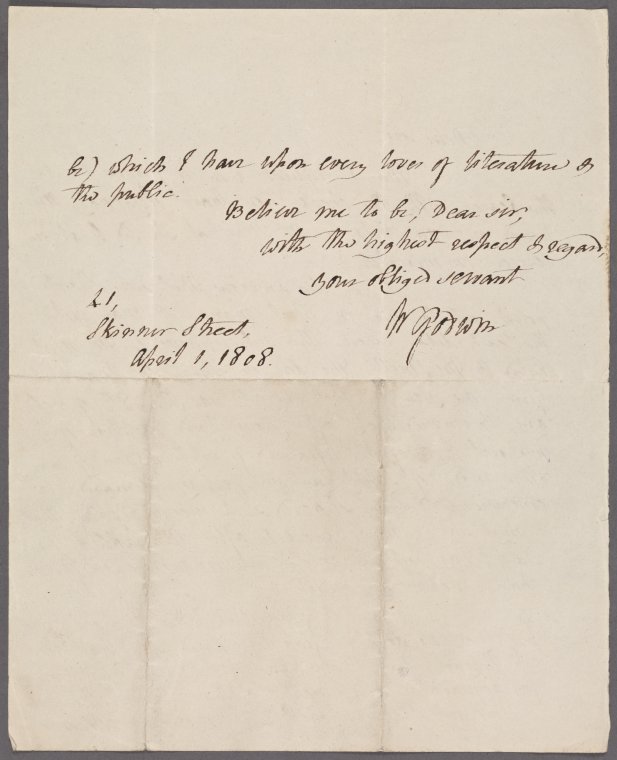 be) which I have upon every lover of literature &
the public.
Believe me to be, Dear sir,
with the highest respect & regard,
your obliged servant
W Godwin
41,
Skinner Street,
April 1, 1808.